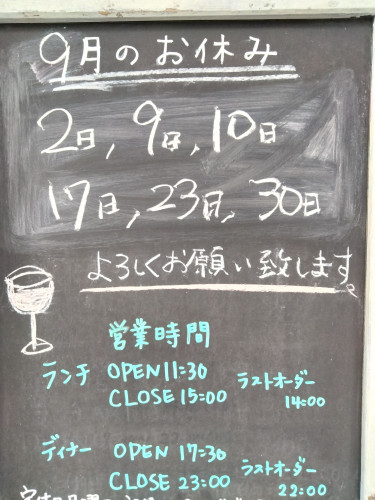 9月のお休み
2日, 9日, 10日
17日, 23日, 30日
よろしくお願い致します。
営業時間
ランチ OPEN 11=30 ラストオーダー
CLOSE 15=00 14=00
ディナー OPEN 17=30 ラストオーダー
CLOSE 23=00 22=00